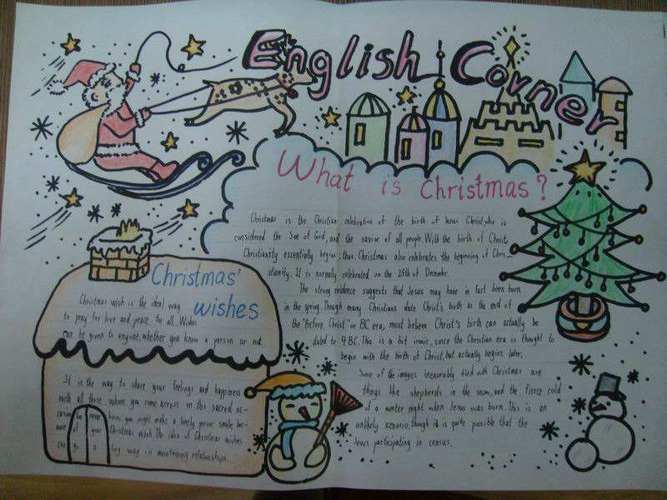 English Corner
What is Christmas?
Christmas is the Christian celebration of the birth of Jesus Christ, who is
considered the Son of God, and the savior of all people. With the birth of Christ
Christianity essentially begins, thus Christmas also celebrates the beginning of Chris-
tianity. It is normally celebrated on the 25th of December
The strong evidence suggests that Jesus may have in fact been born
in the spring. Though many Christians date Christ's birth as the end of
the "Before Christ" or BC era, most believe Christ's birth can actually be
dated to 4 BC. This is a bit ironic, since the Christian era is thought to
begin with the birth of Christ, but actually begins later.
Some of the images inexorably tied with Christmas are
things like shepherds in the snow, and the fierce cold
of a winter night when Jesus was born. This is an
unlikely scenario, though it is quite possible that the
Jews participating in census.
Christmas'
wishes
Christmas wish is the ideal way
to pray for love and peace for all. Wishes
can be given to anyone, whether you know a person or not
It is the way to share your feelings and happiness
with all those whom you come across in this sacred
you might make a lonely person smile
of your Christmas wish. The idea of Christmas wishes
way in maintaining relationships.